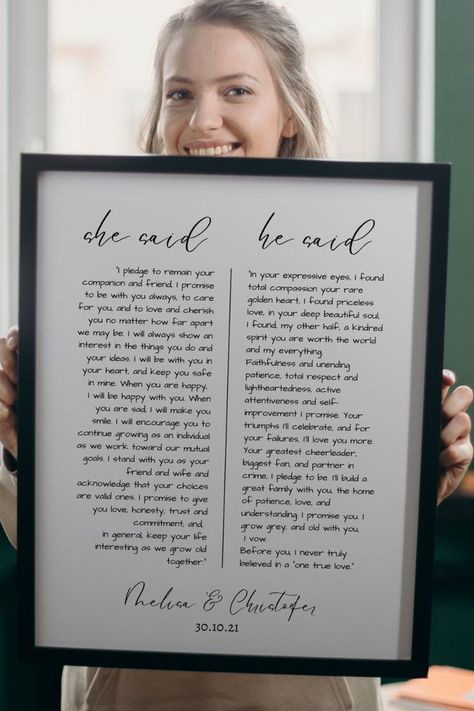 she said
"I pledge to remain your
companion and friend, I promise
to be with you always, to care
for you, and to love and cherish
you no matter how far apart
we may be. I will always show an
interest in the things you do and
your ideas. I will be with you in
your heart, and keep you safe
in mine. When you are happy,
I will be happy with you. When
you are sad, I will make you
smile. I will encourage you to
continue growing as an individual
as we work toward our mutual
goals. I stand with you as your
friend and wife and
acknowledge that your choices
are valid ones. I promise to give
you love, honesty, trust and
commitment, and,
in general, keep your life
interesting as we grow old
together."
he said
"In your expressive eyes, I found
total compassion your rare
golden heart, I found priceless
love, in your deep beautiful soul,
I found, my other half, a kindred
spirit you are worth the world
and my everything.
Faithfulness and unending
patience, total respect and
lightheartedness, active
attentiveness and self-
improvement I promise. Your
triumphs I'll celebrate, and for
your failures, I'll love you more.
Your greatest cheerleader,
biggest fan, and partner in
crime, I pledge to be. I'll build a
great family with you, the home
of patience, love, and
understanding. I promise you. I
grow grey, and old with you,
I vow.
Before you, I never truly
believed in a "one true love."
Melisa & Christofer
30.10.21